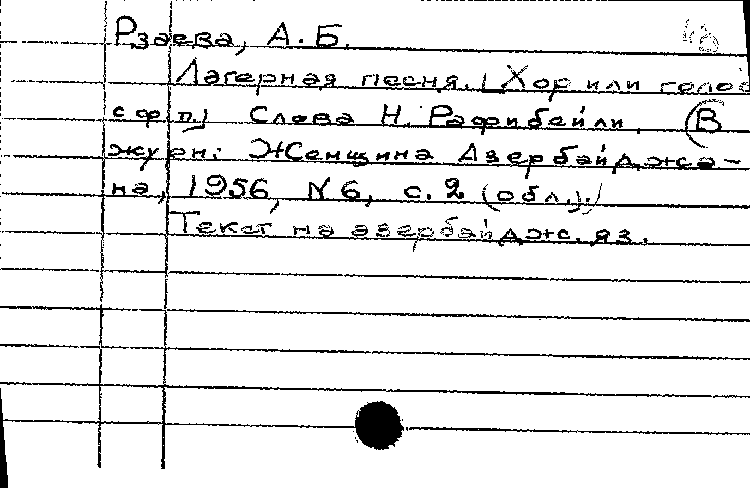 Рзаева, А.Б.
Лагерная песня. [Хор или голос
с фп.] Слова Н. Рафибейли. (В
журн: Женщина Азербайджа-
на, 1956, N6, с. 2 (обл.).)
Текст на азербайдж. яз.